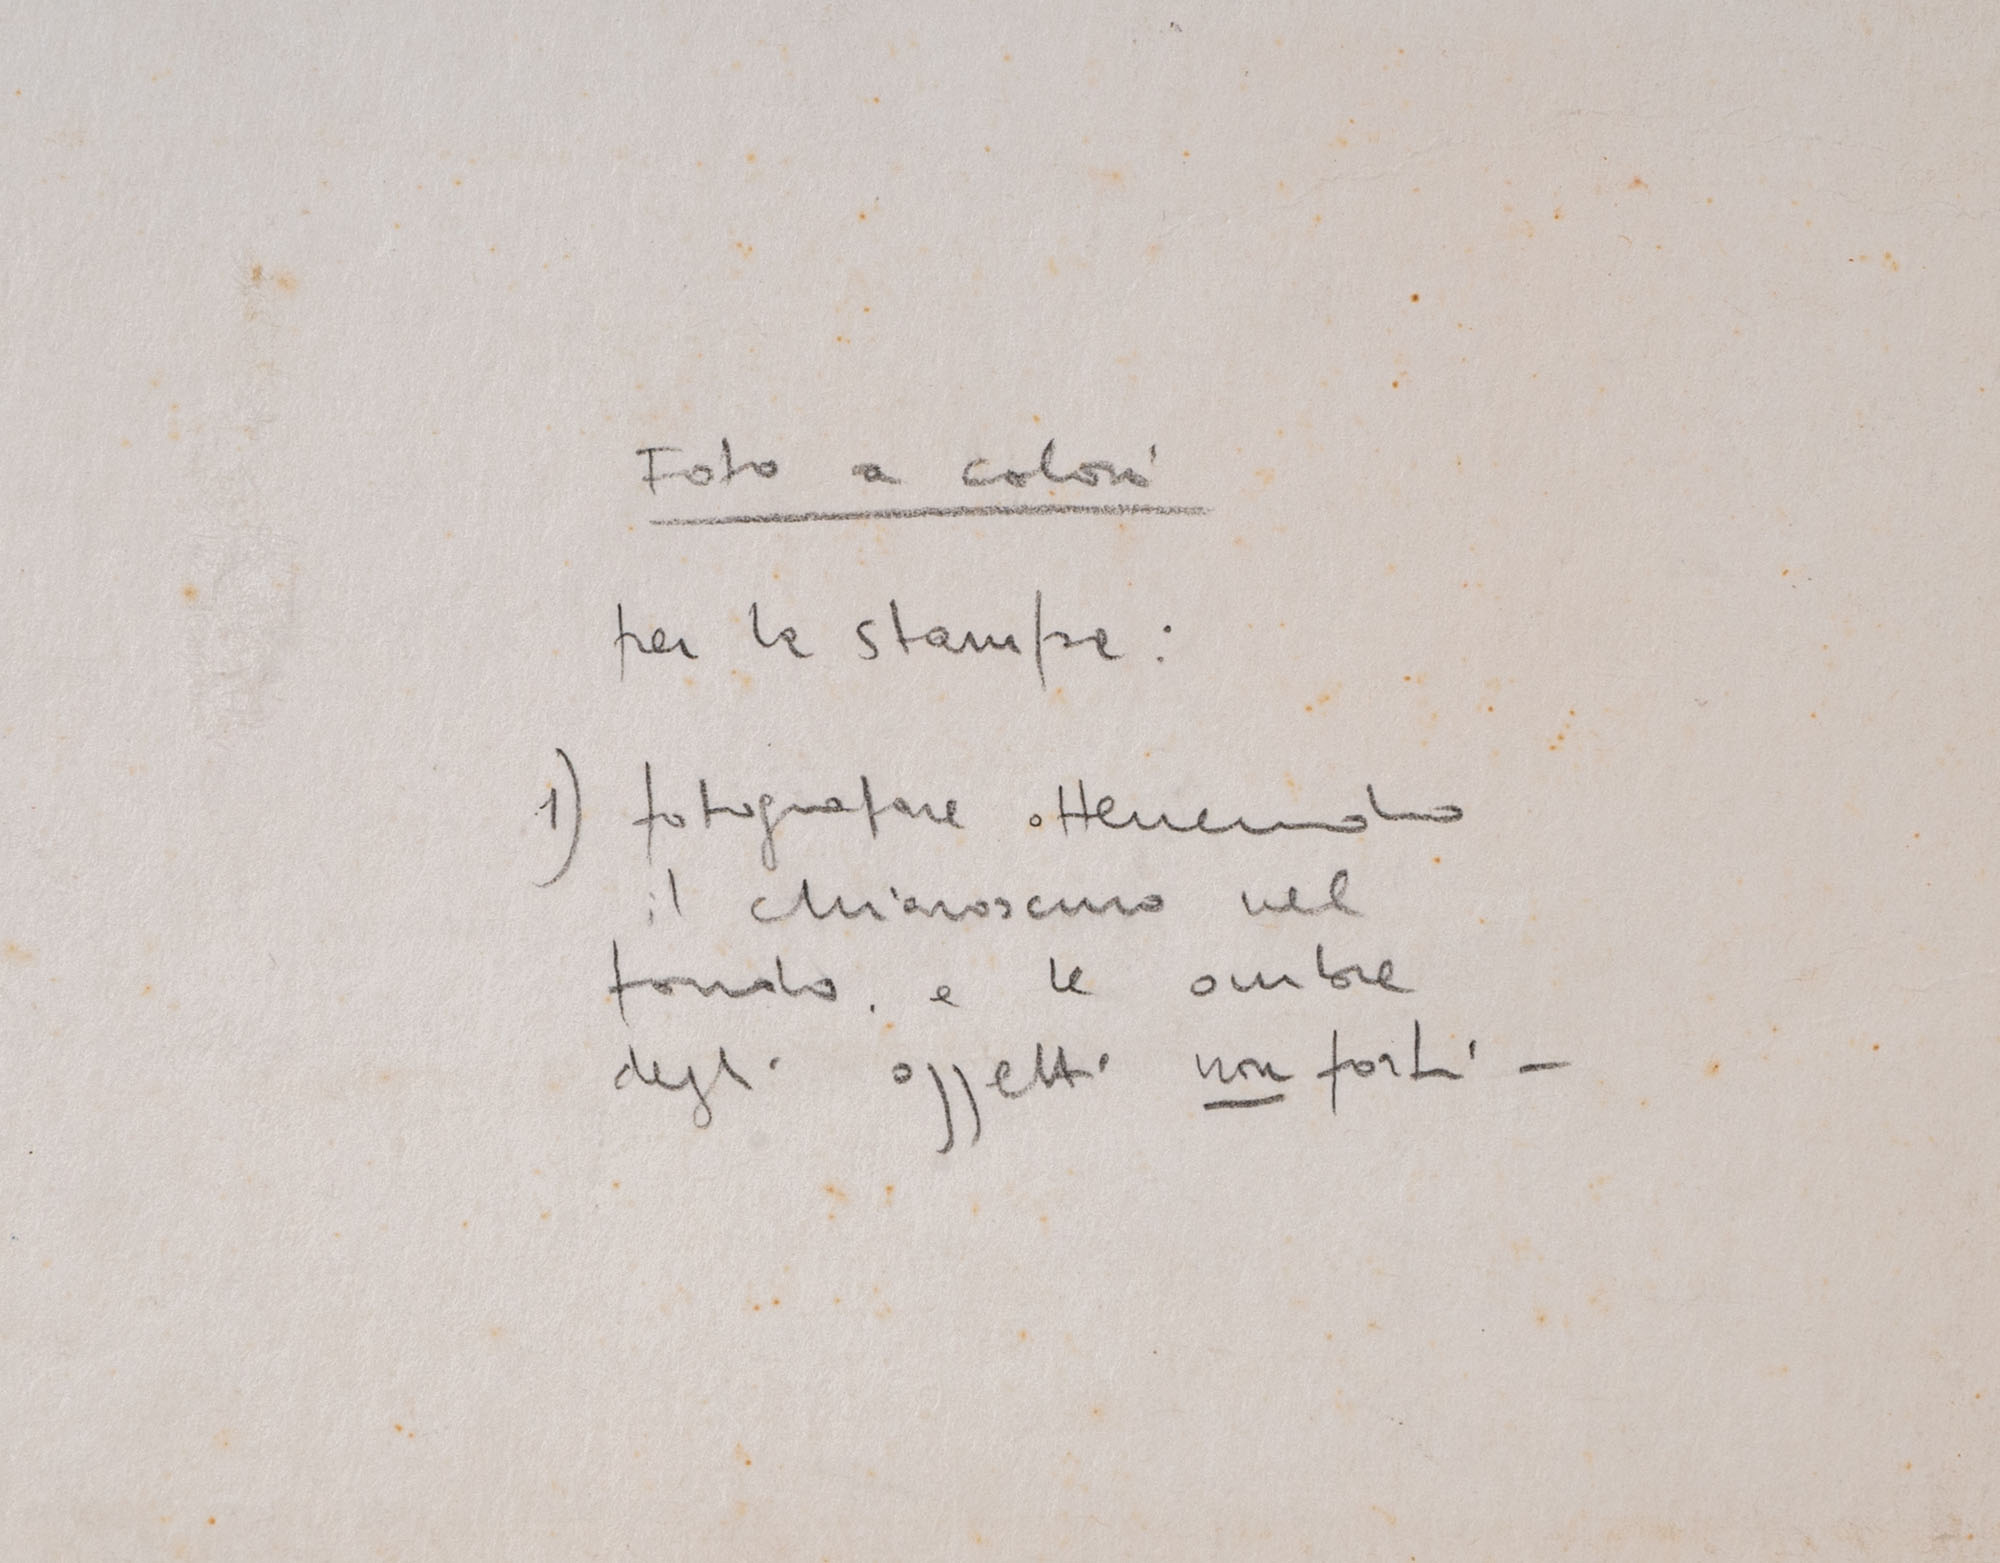 Foto a colori
per le stampe:
1) fotografare ottenendo
il chiaroscuro nel
fondo. e le ombre
degli oggetti non forti -